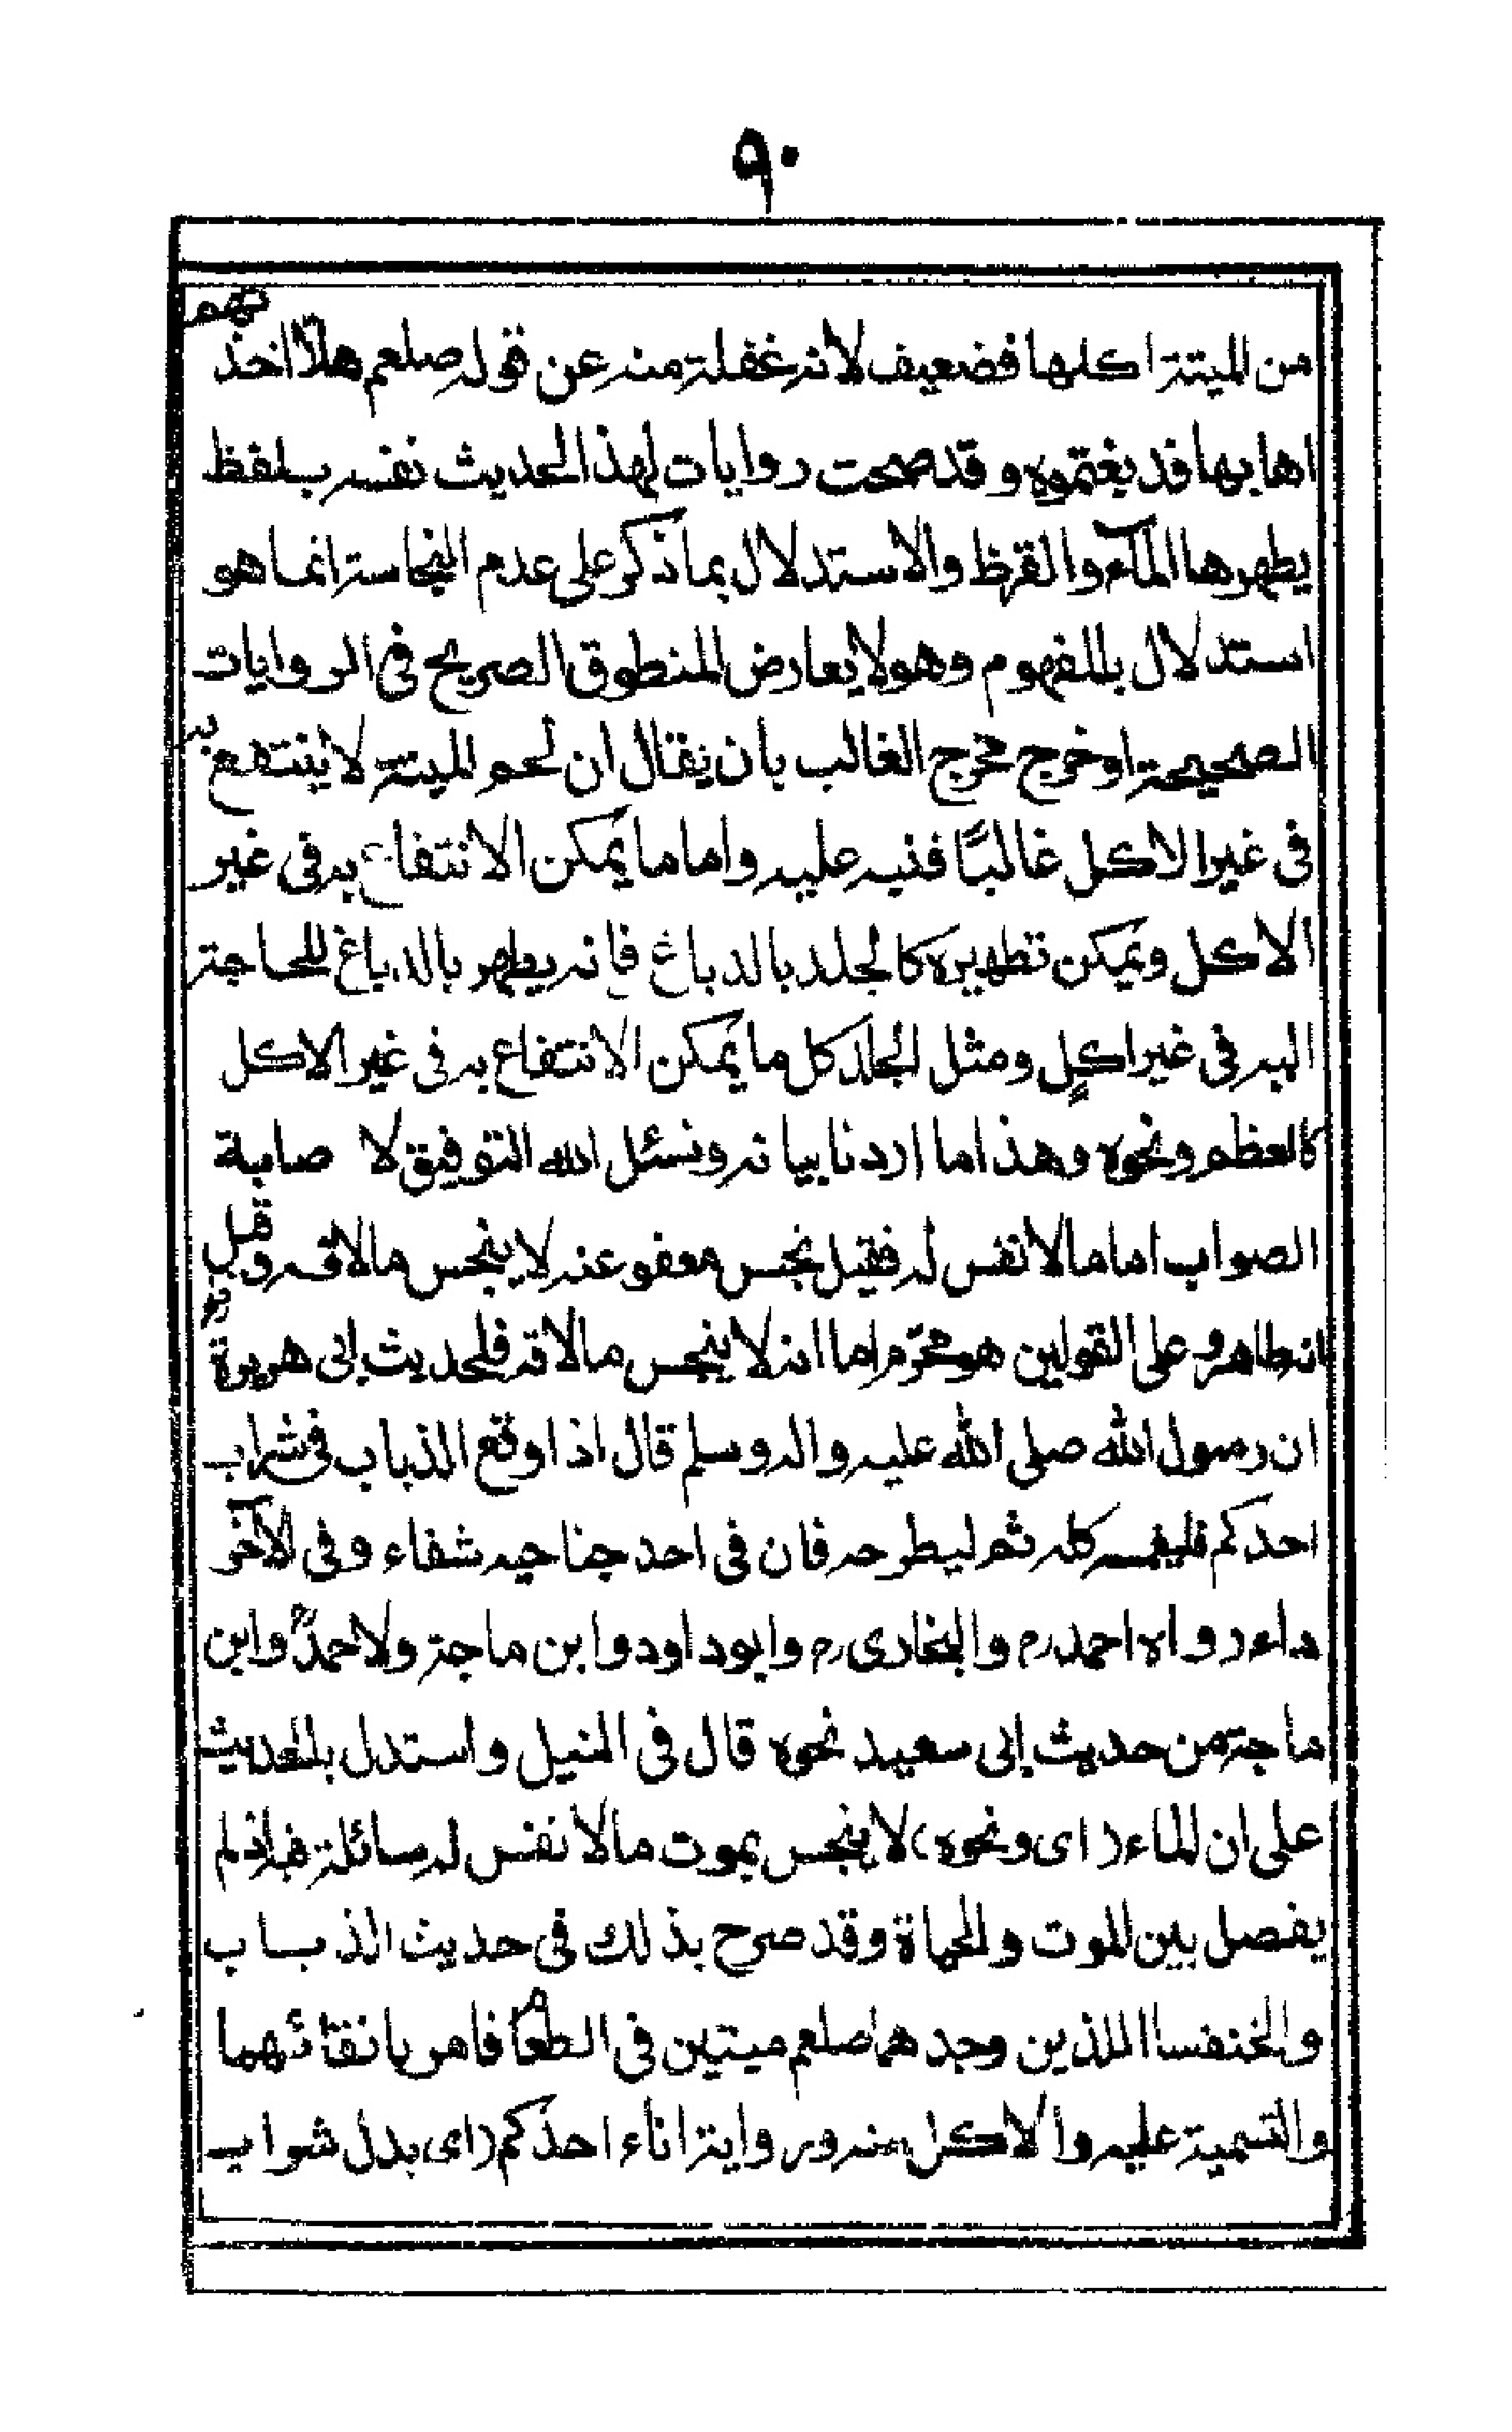 ٩٠
من الميتة اكلها فضعيف لانه غفلة منه عن قوله صلعم هلّا اخذتم
اهابها فدبغتموه وقد صحت روايات لهذا الحديث نفسه بلفظ
يطهرها المآء والقرظ والاستدلال بما ذكر على عدم النجاسة انما هو
استدلال بالمفهوم وهو لا يعارض المنطوق الصريح فى الروايات
الصحيحة او خرج مخرج الغالب بان يقال ان لحم الميتة لا ينتفع به
فى غير الاكل غالبًا فنبه عليه واما ما يمكن الانتفاع به فى غير
الاكل ويمكن تطهيره كالجلد بالدباغ فانه يطهر بالدباغ للحاجة
اليه فى غير اكلٍ ومثل الجلد كل ما يمكن الانتفاع به فى غير الاكل
كالعظم ونحوه وهذا ما اردنا بيانه ونسئل الله التوفيق لا صابة
الصواب اما ما لا نفس له فقيل نجس معفو عنه لا ينجس ما لاقه وقيل
انه طاهر وعلى القولين هو محرّم اما انه لا ينجس ما لاقه فلحديث ابى هريرة
ان رسول الله صلى الله عليه واله وسلم قال اذا وقع الذباب فى شراب
احدكم فليغمسه كله ثم ليطرحه فان فى احد جناحيه شفاء وفى الآخر
داء رواه احمد رح والبخارى رح وابوداود وابن ماجة ولاحمدؒ وابن
ماجة من حديث ابى سعيد نحوه قال فى النيل واستدل بالحديث
على ان الماء (اى ونحوه) لا ينجس بموت ما لا نفس له سائلة فيه اذ لم
يفصل بين الموت والحياة وقد صرح بذلك فى حديث الذباب
والخنفسا اللذين وجدهما صلعم ميتين فى الطعام فامر بانقائهما
والتسمية عليه والاكل منه ورواية اناء احدكم (اى بدل شراب